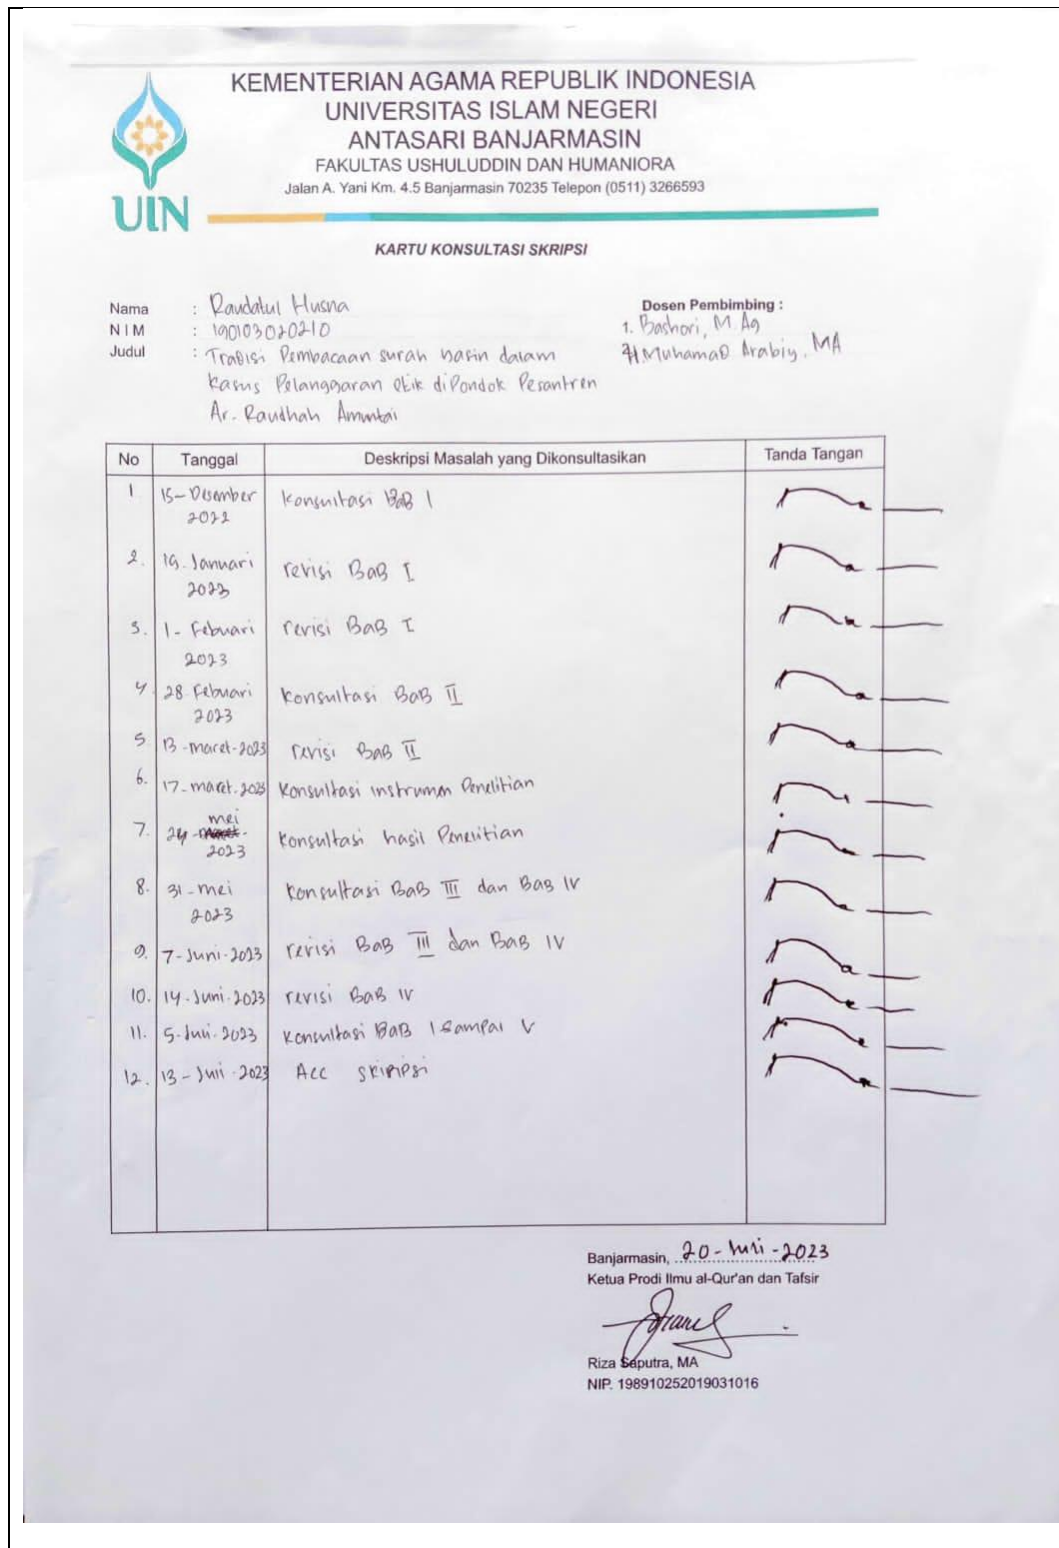 KEMENTERIAN AGAMA REPUBLIK INDONESIA
UNIVERSITAS ISLAM NEGERI
ANTASARI BANJARMASIN
FAKULTAS USHULUDDIN DAN HUMANIORA
Jalan A. Yani Km. 4.5 Banjarmasin 70235 Telepon (0511) 3266593
UIN
KARTU KONSULTASI SKRIPSI
Nama : Raudatul Husna
NIM : 190103020210
Judul : Tradisi Pembacaan surah yasin dalam
kasus Pelanggaran etik di Pondok Pesantren
Ar-Raudhah Amuntai
Dosen Pembimbing :
1. Bashori, M.Ag
2. H. Muhamad Arabiy, MA
No Tanggal Deskripsi Masalah yang Dikonsultasikan Tanda Tangan
1 15-Desember 2022 Konsultasi BaB I
2. 19. Januari 2023 revisi BaB I
3. 1- Febuari 2023 revisi BaB I
4 28 Febuari 2023 Konsultasi BaB II
5 13-maret-2023 revisi BaB II
6. 17-maret.2023 Konsultasi instrumen Penelitian
7. 24-mei 2023 Konsultasi hasil Penelitian
8. 31-mei 2023 Konsultasi BaB III dan BaB IV
9. 7-Juni-2023 revisi BaB III dan BaB IV
10. 14-Juni-2023 revisi BaB IV
11. 5-Juli-2023 Konsultasi BaB I sampai V
12. 13-Juli-2023 Acc skripsi
Banjarmasin, 20-Juli-2023
Ketua Prodi Ilmu al-Qur'an dan Tafsir
Riza Saputra, MA
NIP. 198910252019031016